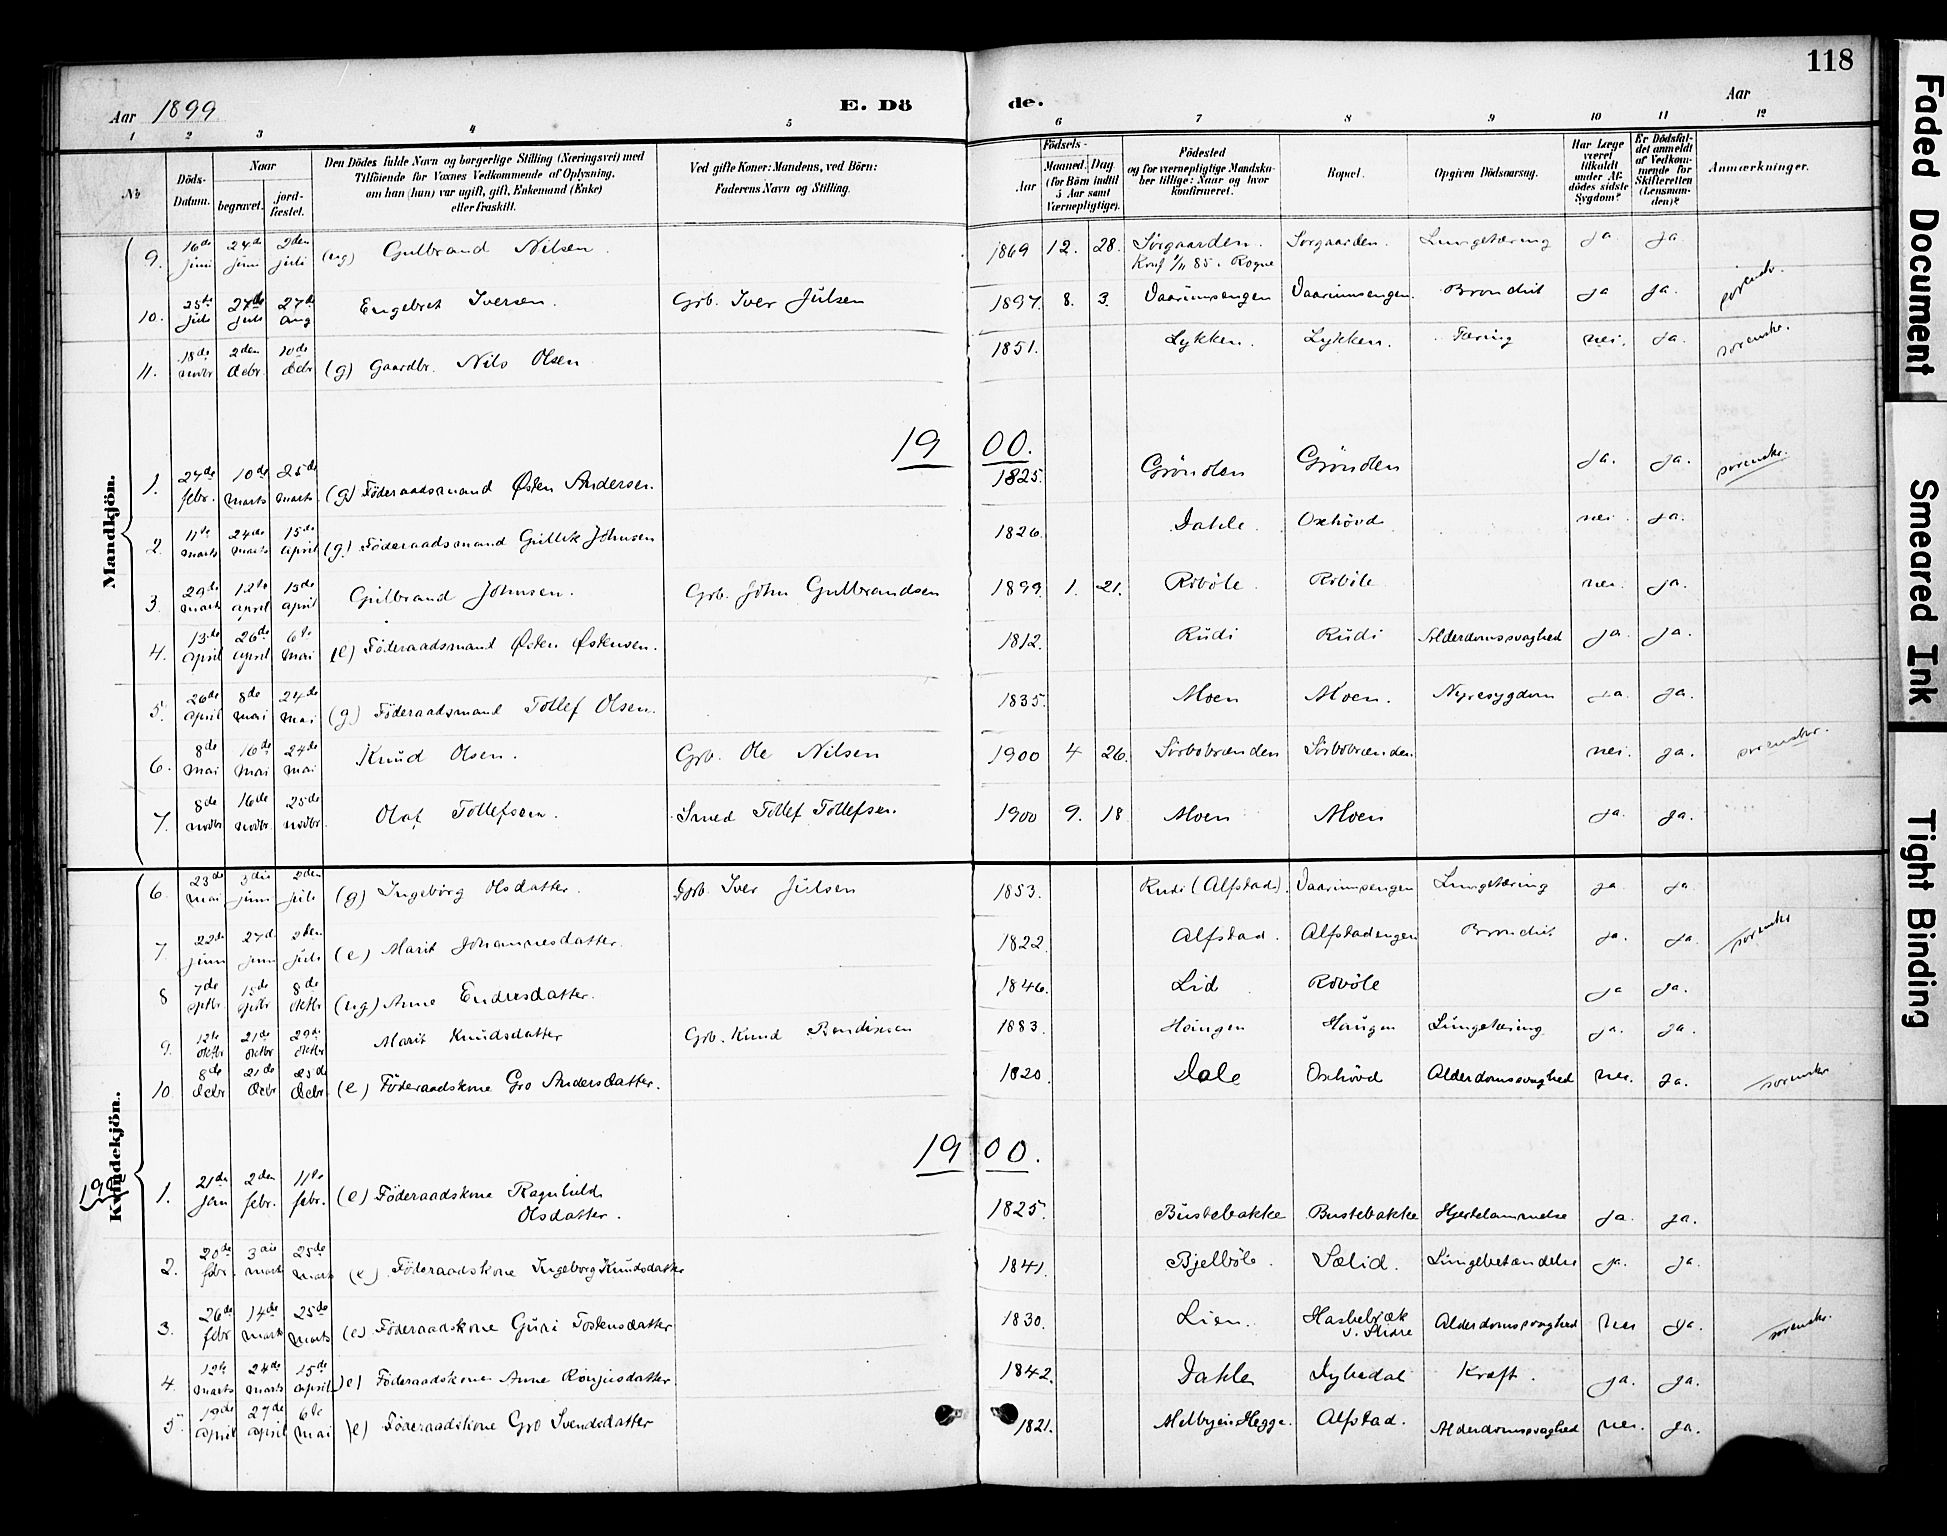 118
Faded Document
Smeared Ink
Tight Binding
Aar 1899 E. Dö de. Aar
1 2 3 4 5 6 7 8 9 10 11 12
No. Döds-Datum. Naar begravet. jord-fæstet. Den Dödes fulde Navn og borgerlige Stilling (Næringsvei) med Tilföiende for Voxnes Vedkommende af Oplysning, om han (hun) var ugift, gift, Enkemand (Enke) eller fraskilt. Ved gifte Koner: Mandens, ved Börn: Faderens Navn og Stilling. Födsels- Aar Maaned. Dag (for Börn indtil 5 Aar samt Værnepligtige). Födested og for værnepligtige Mandskaber tillige: Naar og hvor konfirmeret. Bopæl. Opgiven Dödsaarsag. Har Læge været tilkaldt under Afdödes sidste Sygdom? Er Dödsfaldet anmeldt af Vedkommende for Skifteretten (Lensmanden)? Anmærkninger.
Mandkjön.
9. 16de juni 24de juni 2den juli (ug) Gulbrand Nilsen. 1869 12. 28. Sørgaarden. Sørgaarden. Lungetæring ja ja
Konf 85. Rogne
10. 25de juli 27de juli 27de aug Engebret Iversen. Grb. Iver Julsen 1897. 8. 3. Vaarimsengen Vaarimsengen. Bronchit ja ja. sorenskr.
11. 18de novbr 2den debr. 10de debr (g) Gaardbr. Nils Olsen 1851. Lykken. Lykken. Tæring nei. ja. sorenskr.
1900.
1. 27de febr. 10de marts 25de marts (g) Föderaadsmand Østen Andersen. 1825. Grönolen Grönolen ja. ja. sorenskr.
2. 11te marts 24de marts 15de april (g.) Föderaadsmand Gullik Johnsen 1826. Dahle. Oxhövd nei. ja.
3. 29de marts 12te april 13de april Gulbrand Johnsen. Grb. John Gulbrandsen 1899. 1. 21. Robøle. Robøle nei. ja.
4. 13de april 26de april 6te mai (e) Föderaadsmand Østen Østensen. 1812. Rudi Rudi Alderdomssvaghed ja. ja.
5. 26de april 8de mai 24de mai (g.) Föderaadsmand Tollef Olsen. 1835. Moen Moen. Nyresygdom ja. ja.
6. 8de mai 16de mai 24de mai Knud Olsen. Grb. Ole Nilsen 1900 4 26. Sörbobrænden Sörbobrænden nei. ja. sorenskr.
7. 8de novbr 16de novbr. 25de novbr. Olaf Tollefsen. Smed Tollef Tollefsen. 1900 9. 18 Moen Moen ja. ja.
Kvindekjön.
6. 23de mai 3die juni 2den juli (g) Ingebörg Olsdatter. Grb. Iver Julsen 1853. Rudi (Alfstad). Vaarimsengen Lungetæring ja. ja.
7. 22de juni 27de juni 2den juli (e) Marit Johannesdatter. 1822. Alfstad. Alfstadengen Bronchit ja. ja. sorenskr
8 7de 15de 8de oktbr (ug) Anne Endresdatter. 1846. Lid Robøle ja ja.
9. 12te oktbr 21de oktbr 29de oktbr Marit Knudsdatter Grb. Knud Bendixsen 1883. Haugen Haugen Lungetæring ja. ja.
10. 8de debr 21de debr 23de debr. (e) Föderaadskone Gro Andersdatter. 1820. Dale Oxhövd Alderdomssvaghed nei. ja. sorenskr
1900.
1. 21de jan 2den febr. 11te febr. (e) Föderaadskone Ragnhild
Olsdatter. 1825. Büstebakke Bustebakke Hjertelammelse ja. ja.
2. 20de febr. 3die marts 25de marts (e) Föderaadskone Ingeborg Knudsdatter 1841. Bjelböle. Sælid. Lungebetændelse ja. ja.
3. 26de febr 14de marts 25de marts (e) Föderaadskone Guri Tostensdatter 1830. Lien. Hasbebræk
S. Slidre Alderdomssvaghed nei ja. sorenskr.
4. 12te marts 24de marts 15de april (e) Föderaadskone Anne Rönjusdatter 1842. Dahle Dybedal Kræft. ja. ja.
5. 19de april 27de april 6te mai (e) Föderaadskone Gro Svendsdatter 1821. Melbyeis Hegge. Alfstad. Alderdomssvaghed nei. ja.